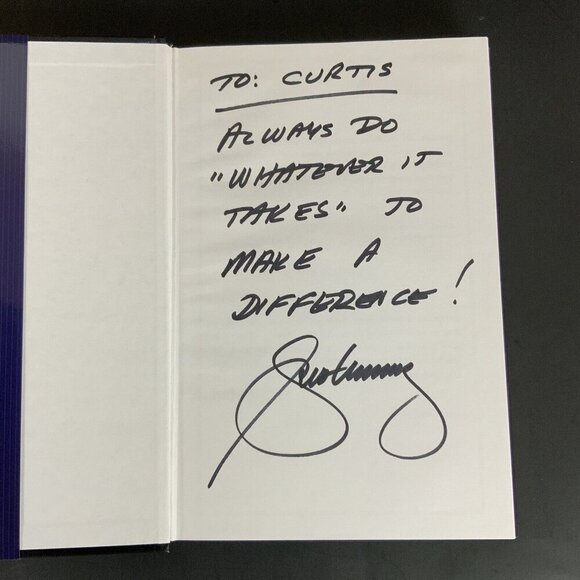 TO: CURTIS
ALWAYS DO
"WHATEVER IT
TAKES" TO
MAKE A
DIFFERENCE!